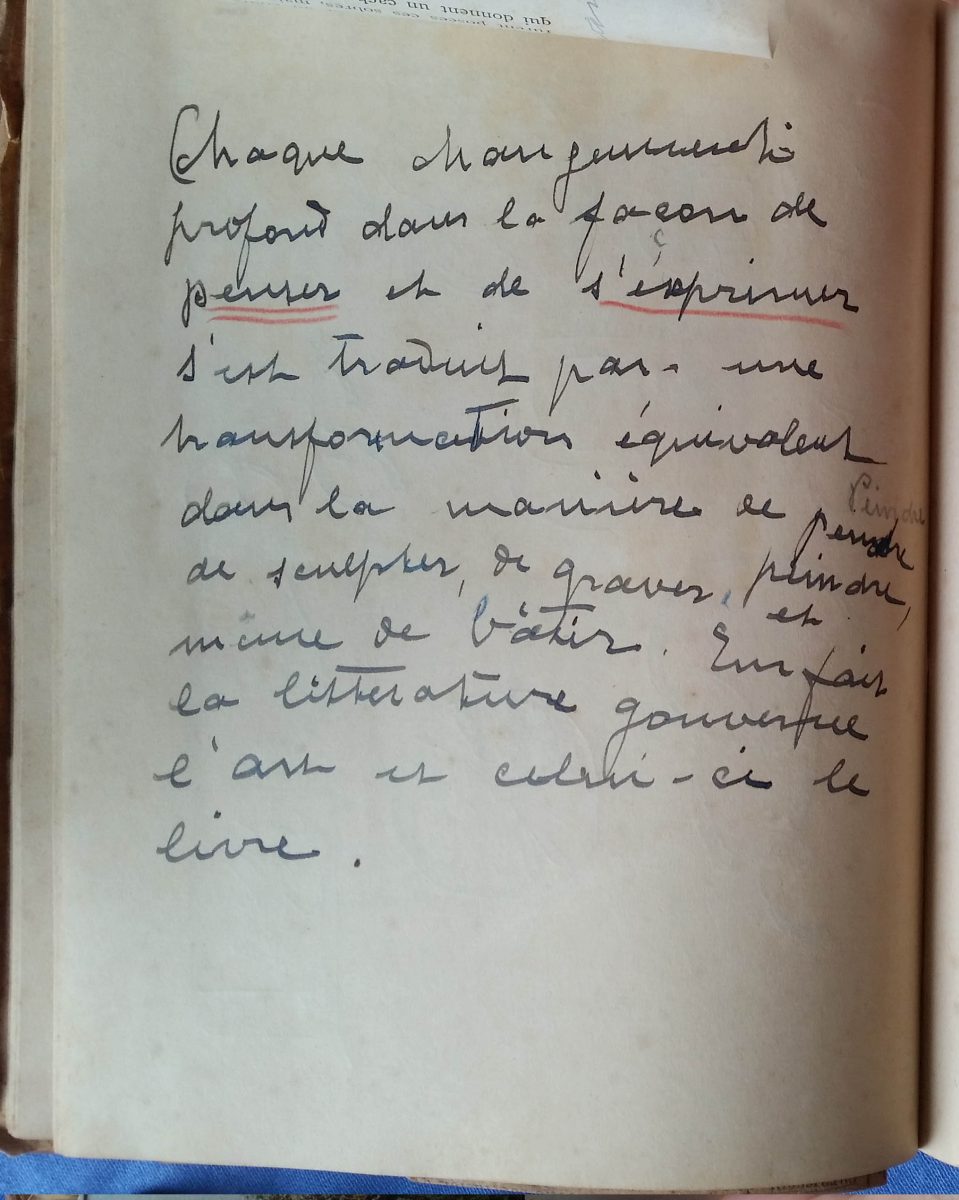 qui donnent un cach
furent posées ces sobres, mai
Chaque changement
profond dans la façon de
ç
penser et de s'éxprimer
s'est traduit par une
transformation équivalent
dans la manière de peindre
Peindre
de sculpter, de graver, peindre,
et
même de bâtir. En fait
la littérature gouverne
l'art et celui-ci le
livre.